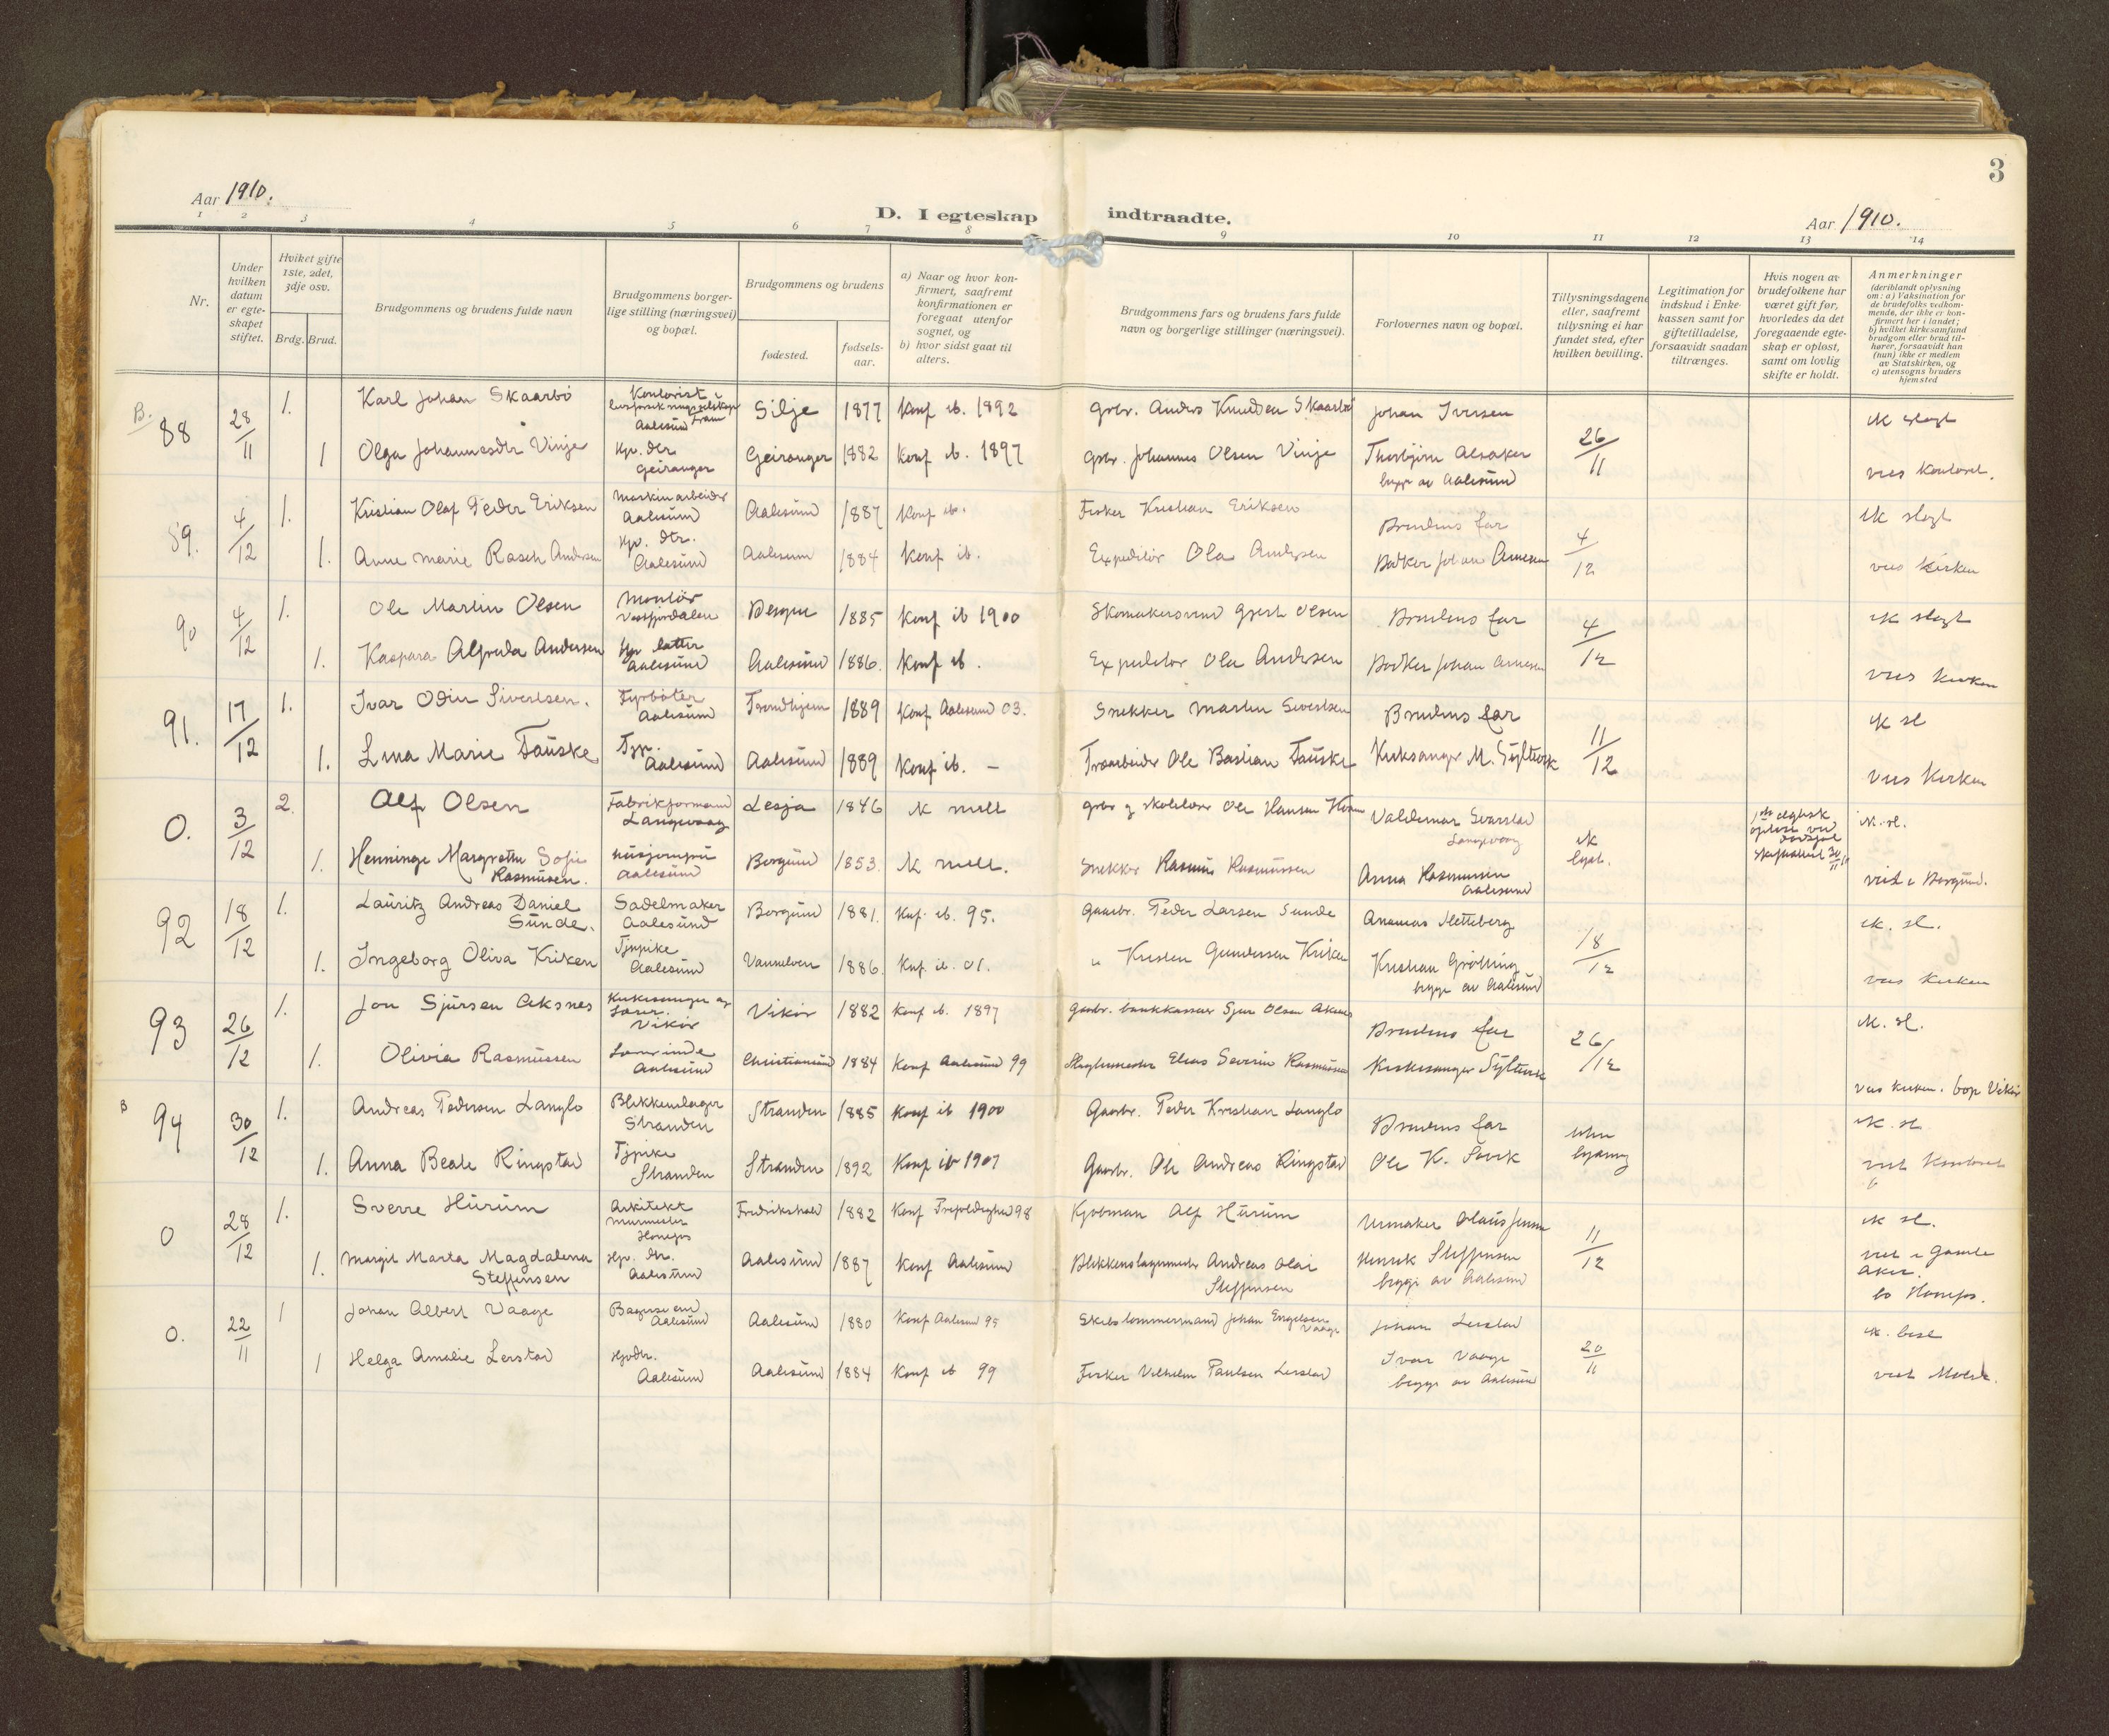 3
Aar 1910.
D. I egteskap indtraadte.
Aar 1910.
1 2 3 4 5 6 7 8 9 10 11 12 13 14
Nr.
Under hvilken datum er egteskapet stiftet.
Hviket gifte 1ste, 2det, 3dje osv.
Brdg. Brud.
Brudgommens og brudens fulde navn
Brudgommens borgerlige stilling (næringsvei) og bopæl.
Brudgommens og brudens
fødested.
fødselsaar.
a) Naar og hvor konfirmert, saafremt konfirmationen er foregaat utenfor sognet, og
b) hvor sidst gaat til alters.
Brudgommens fars og brudens fars fulde navn og borgerlige stillinger (næringsvei).
Forlovernes navn og bopæl.
Tillysningsdagene eller, saafremt tillysning ei har fundet sted, efter hvilken bevilling.
Legitimation for indskud i Enkekassen samt for giftetilladelse, forsaavidt saadan tiltrænges.
Hvis nogen av brudefolkene har været gift før, hvorledes da det foregaaende egteskap er opløst, samt om lovlig skifte er holdt.
Anmerkninger (deriblandt oplysning om: a) Vaksination for de brudefolks vedkommende, der ikke er konfirmert her i landet; b) hvilket kirkesamfund brudgom eller brud tilhører, forsaavidt han (hun) ikke er medlem av Statskirken, og c) utensogns bruders hjemsted
B. 88 28/11 1. Karl Johan Skaarbö Kontorist Aalesund Silje 1877 Konf ib. 1892 Grbr. Anders Knudsen Skaarbö Johan Iversen 26/11 ik slegt
1 Olga Johannesdtr Vinje Hp. dtr Geiranger Geiranger 1882 Konf ib. 1897 Grbr. Johannes Olsen Vinje Thorbjörn Alsaker begge av Aalesund vies kontoret.
89. 4/12 1. Kristian Olaf Peder Eriksen Maskinarbeider Aalesund Aalesund 1887 Konf ib. Fisker Kristian Eriksen Brudens far 4/12 ik slegt
1. Anne Marie Rasch Andersen Hp. dtr. Aalesund Aalesund 1884 Konf ib. Expeditör Ola Andersen Bödker Johan Arnesen vies kirken
90 4/12 1. Ole Martin Olsen Montör Vestfjordalen Bergen 1885 Konf ib 1900 Skomakersvend Gjert Olsen Brudens far 4/12 ik slegt
1. Kaspara Alfreda Andersen Hp datter Aalesund Aalesund 1886. Konf ib. Expeditör Ola Andersen Bödker Johan Arnesen vies kirken
91. 17/12 1. Ivar Odin Sivertsen. Fyrböter Aalesund Trondhjem 1889 Konf Aalesund 03. Snekker Martin Sivertsen Brudens far 11/12 ik sl
1. Lina Marie Fauske Tjp. Aalesund Aalesund 1889 Konf ib. – Træarbeider Ole Bastian Fauske Kirkesanger M. Sylterk vies kirken
0. 3/12 2. Alf Olsen Fabrikformand Langevaag Lesja 1846 Grbr og skolelærer Ole Hansen Valdemar Svarstad Langevaag ik lyst. ik. sl.
1. Henninge Margrethe Sofie Rasmusen. husjomfru Aalesund Borgund 1853. Snekker Rasmus Rasmussen Anna Rasmussen Aalesund viet i Borgund.
92 18/12 1. Lauritz Andreas Daniel Sunde. Sadelmaker Aalesund Borgund 1881. Knf. ib. 95. Gaarbr. Peder Larsen Sunde Ananias Sletteberg 18/12 ik. sl.
1. Ingeborg Oliva Kriken Tjnpike Aalesund Vannelven 1886. Knf. ib. 01. " Kristen Gundersen Kriken Kristian Gröttung begge av Aalesund vies kirken
93 26/12 1. Jon Sjursen Aksnes Kirkesanger og lærer. Vikör Vikör 1882 Konf ib. 1897 Gaarbr. bankkasserer Sjur Olsen Aksnes Brudens far 26/12 ik. sl.
1. Olivia Rasmussen Lærerinde Aalesund Christiansund 1884 Konf Aalesund 99 Slagtermester Elias Severin Rasmussen Kirkesanger Sylterk vies kirken. bop Vikör
B 94 30/12 1. Andreas Pedersen Langlo Blikkenslager Stranden Stranden 1885 Konf ib 1900 Gaarbr. Peder Kristian Langlo Brudens far uten lysning ik. sl
1. Anna Beate Ringstad Tjpike Stranden Stranden 1892 Konf ib 1907 Gaarbr. Ole Andreas Ringstad Ole K. Sövik viet kontoret
0 28/12 1. Sverre Hurum Arkitekt Murmester Hönefos Fredrikshald 1882 Konf Trefoldighed 98 Kjöbman Alf Hurum Urmaker Olaus Jensen 11/12 ik sl.
1. Margit Marta Magdalena Steffensen Hp. dtr. Aalesund Aalesund 1887 Konf Aalesund Blikkenslagermester Andreas Olai Steffensen Henrik Steffensen begge av Aalesund viet i Gamle Aker. bo Hönefos.
0. 22/11 1 Johan Albert Vaage Bagersvend Aalesund Aalesund 1880 Konf Aalesund 95 Skibstømmermand Johan Engelsen Vaage Johan Lerstad 20/11 ik. besl
1 Helga Amalie Lerstad Hpdtr. Aalesund Aalesund 1884 Konf ib 99 Fisker Vilhelm Paulsen Lerstad Ivar Vaage begge av Aalesund viet Molde.